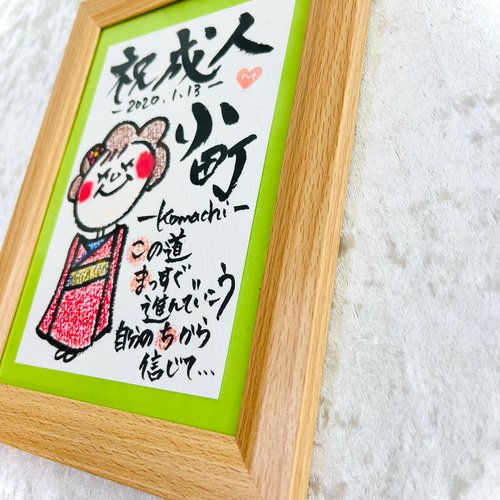 祝成人
-2020.1.13-
M
小町
-Komachi-
この道
まっすぐ
進んでいこう
自分のちから
信じて…